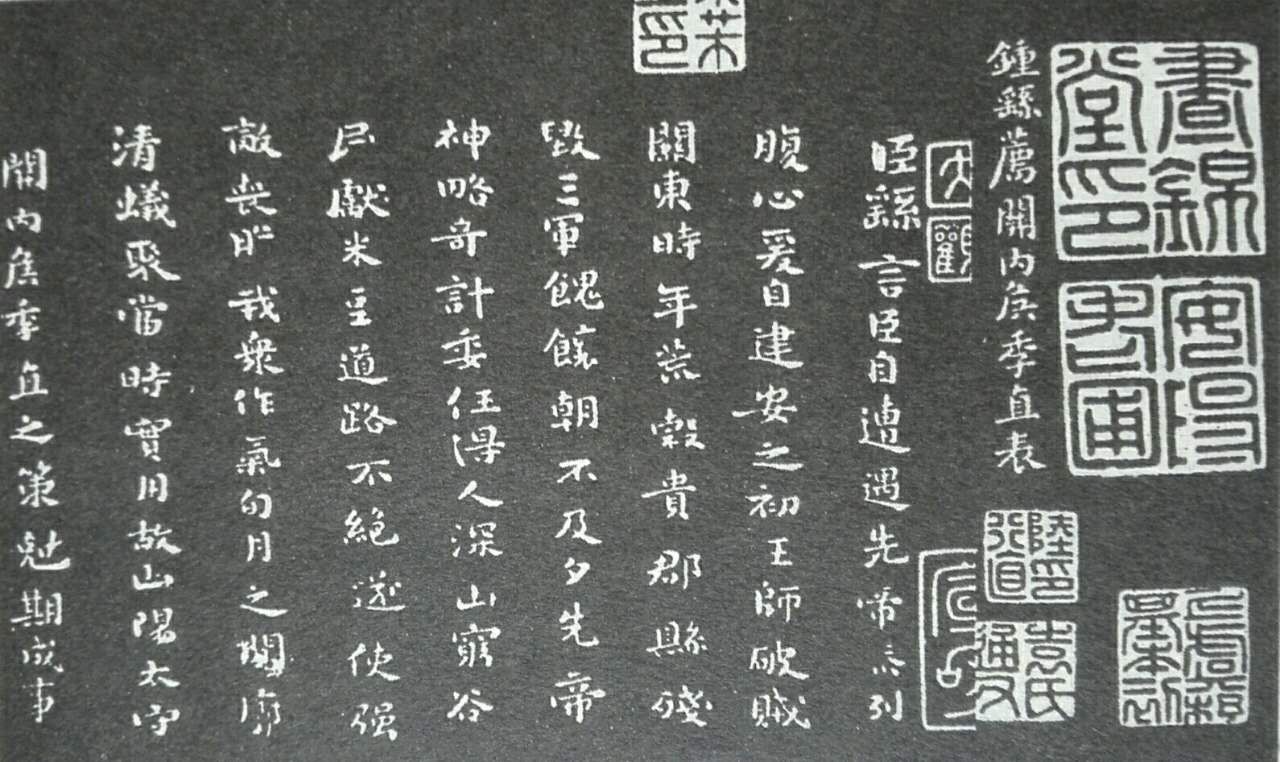 晝錦堂印
鍾繇薦關内侯季直表
大觀
陸行直印
袁氏通父
臣繇言臣自遭遇先帝忝列
腹心爰自建安之初王師破賊
關東時年荒穀貴郡縣殘
毀三軍餽饟朝不及夕先帝
神略奇計委任得人深山窮谷
民獻米豆道路不絶遂使强
敵喪膽我衆作氣旬月之間廓
清蟻聚當時實用故山陽太守
關内侯季直之策尅期成事